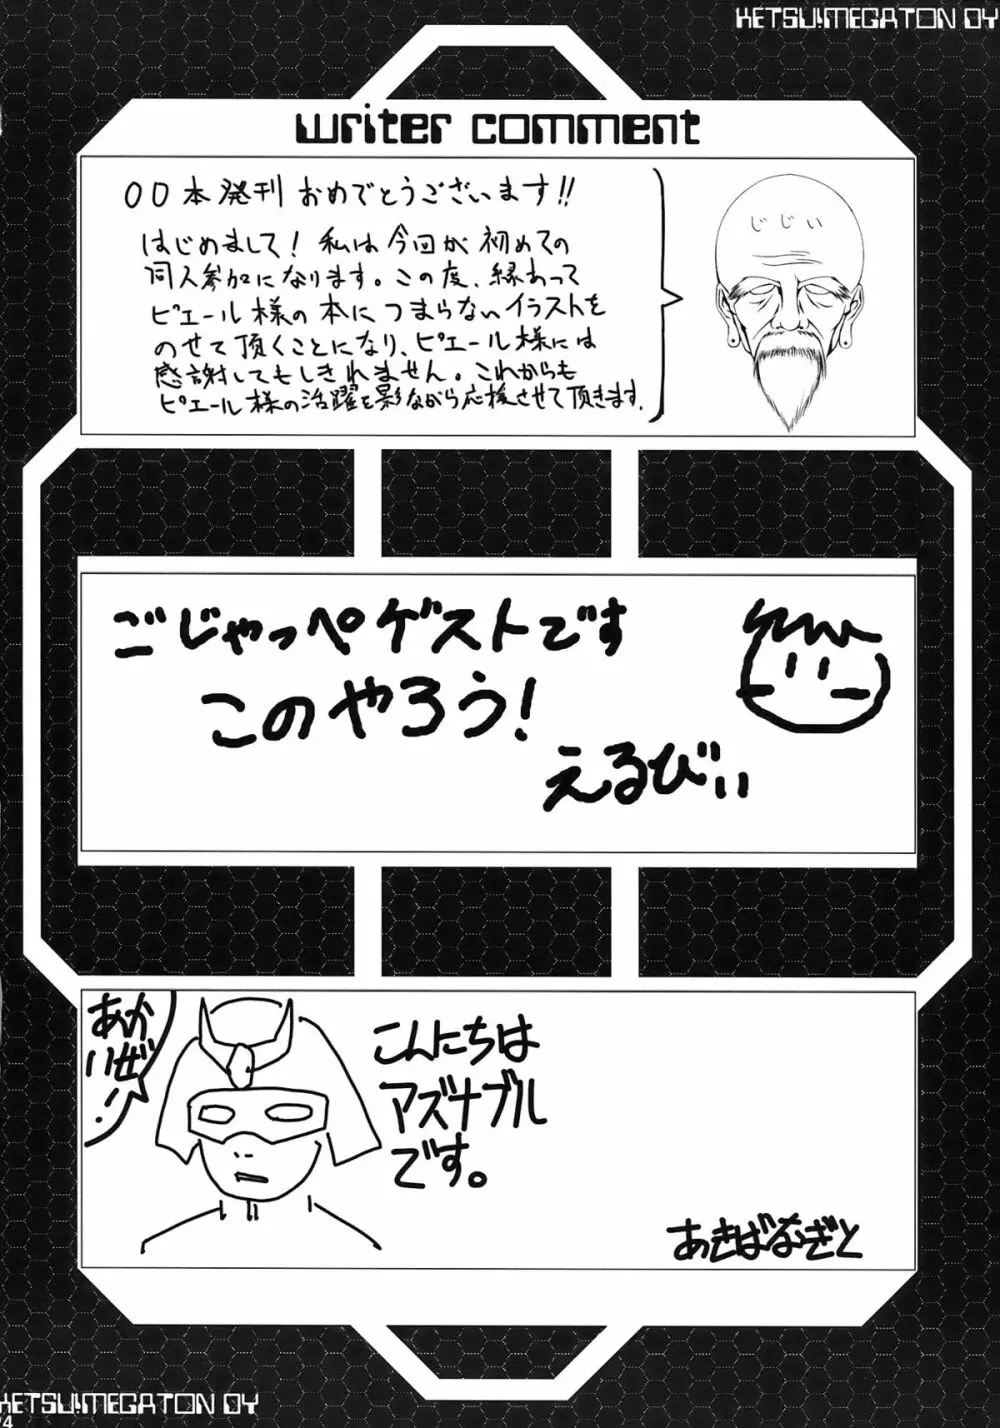 KETSU!MEGATON OY
writer comment
○○本発刊おめでとうございます!!
じじい
はじめまして!私は今回が初めての
同人参加になります。この度、縁あって
ピエール様の本につまらないイラストを
のせて頂くことになり、ピエール様には
感謝してもしきれません。これからも
ピエール様の活躍を影ながら応援させて頂きます。
ごじゃっぺゲストです
このやろう!
えるびぃ
あか
いぜ!
こんにちは
アズナブル
です。
あきばなぎと
KETSU!MEGATON OY
24